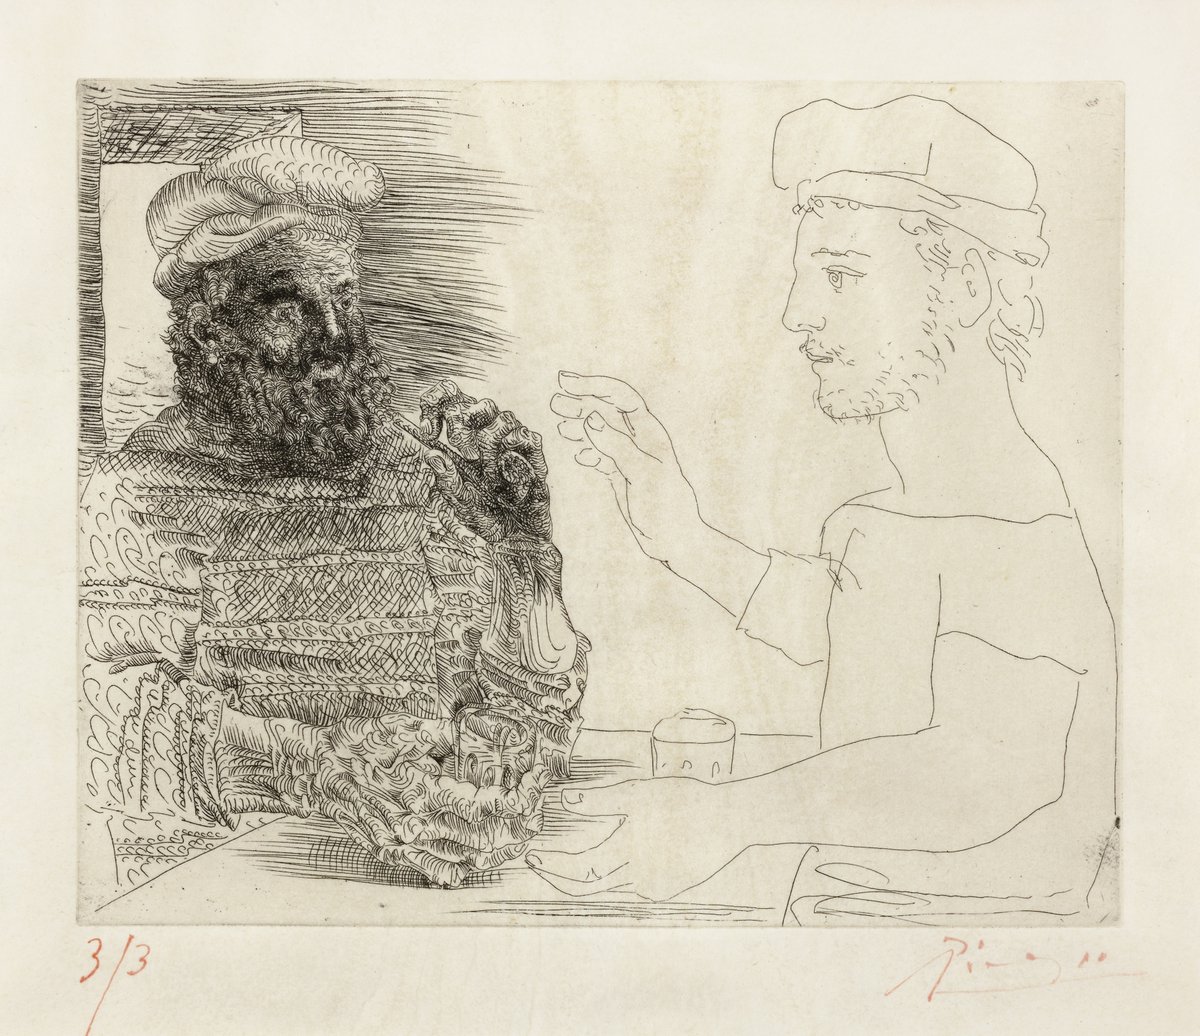 3/3
Picasso